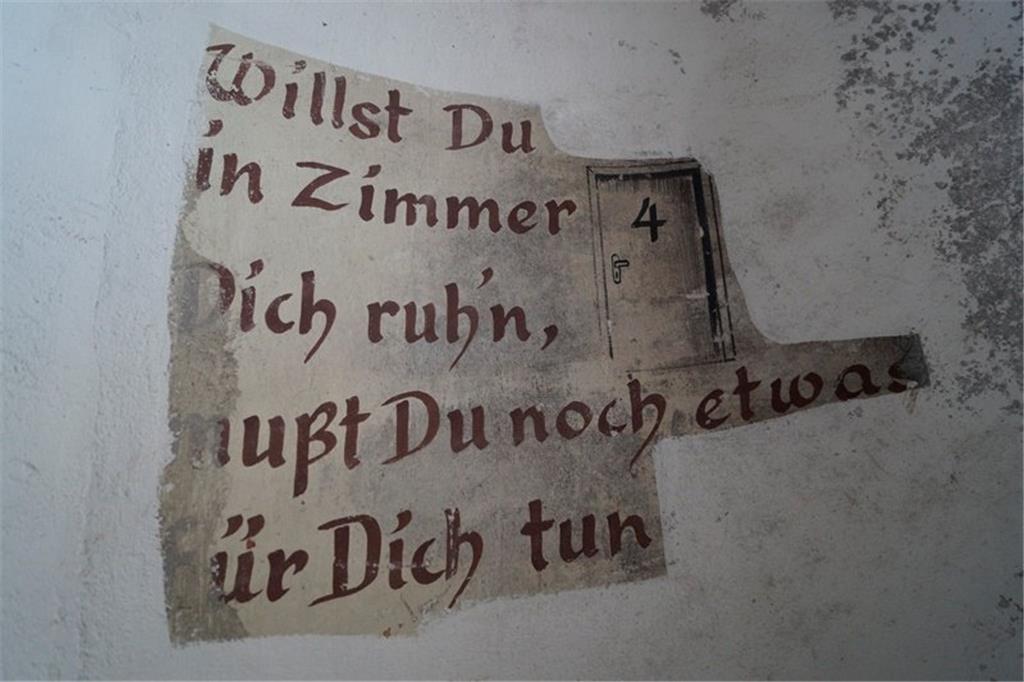 Willst Du
in Zimmer
4
Dich ruh'n,
mußt Du noch etwas
für Dich tun